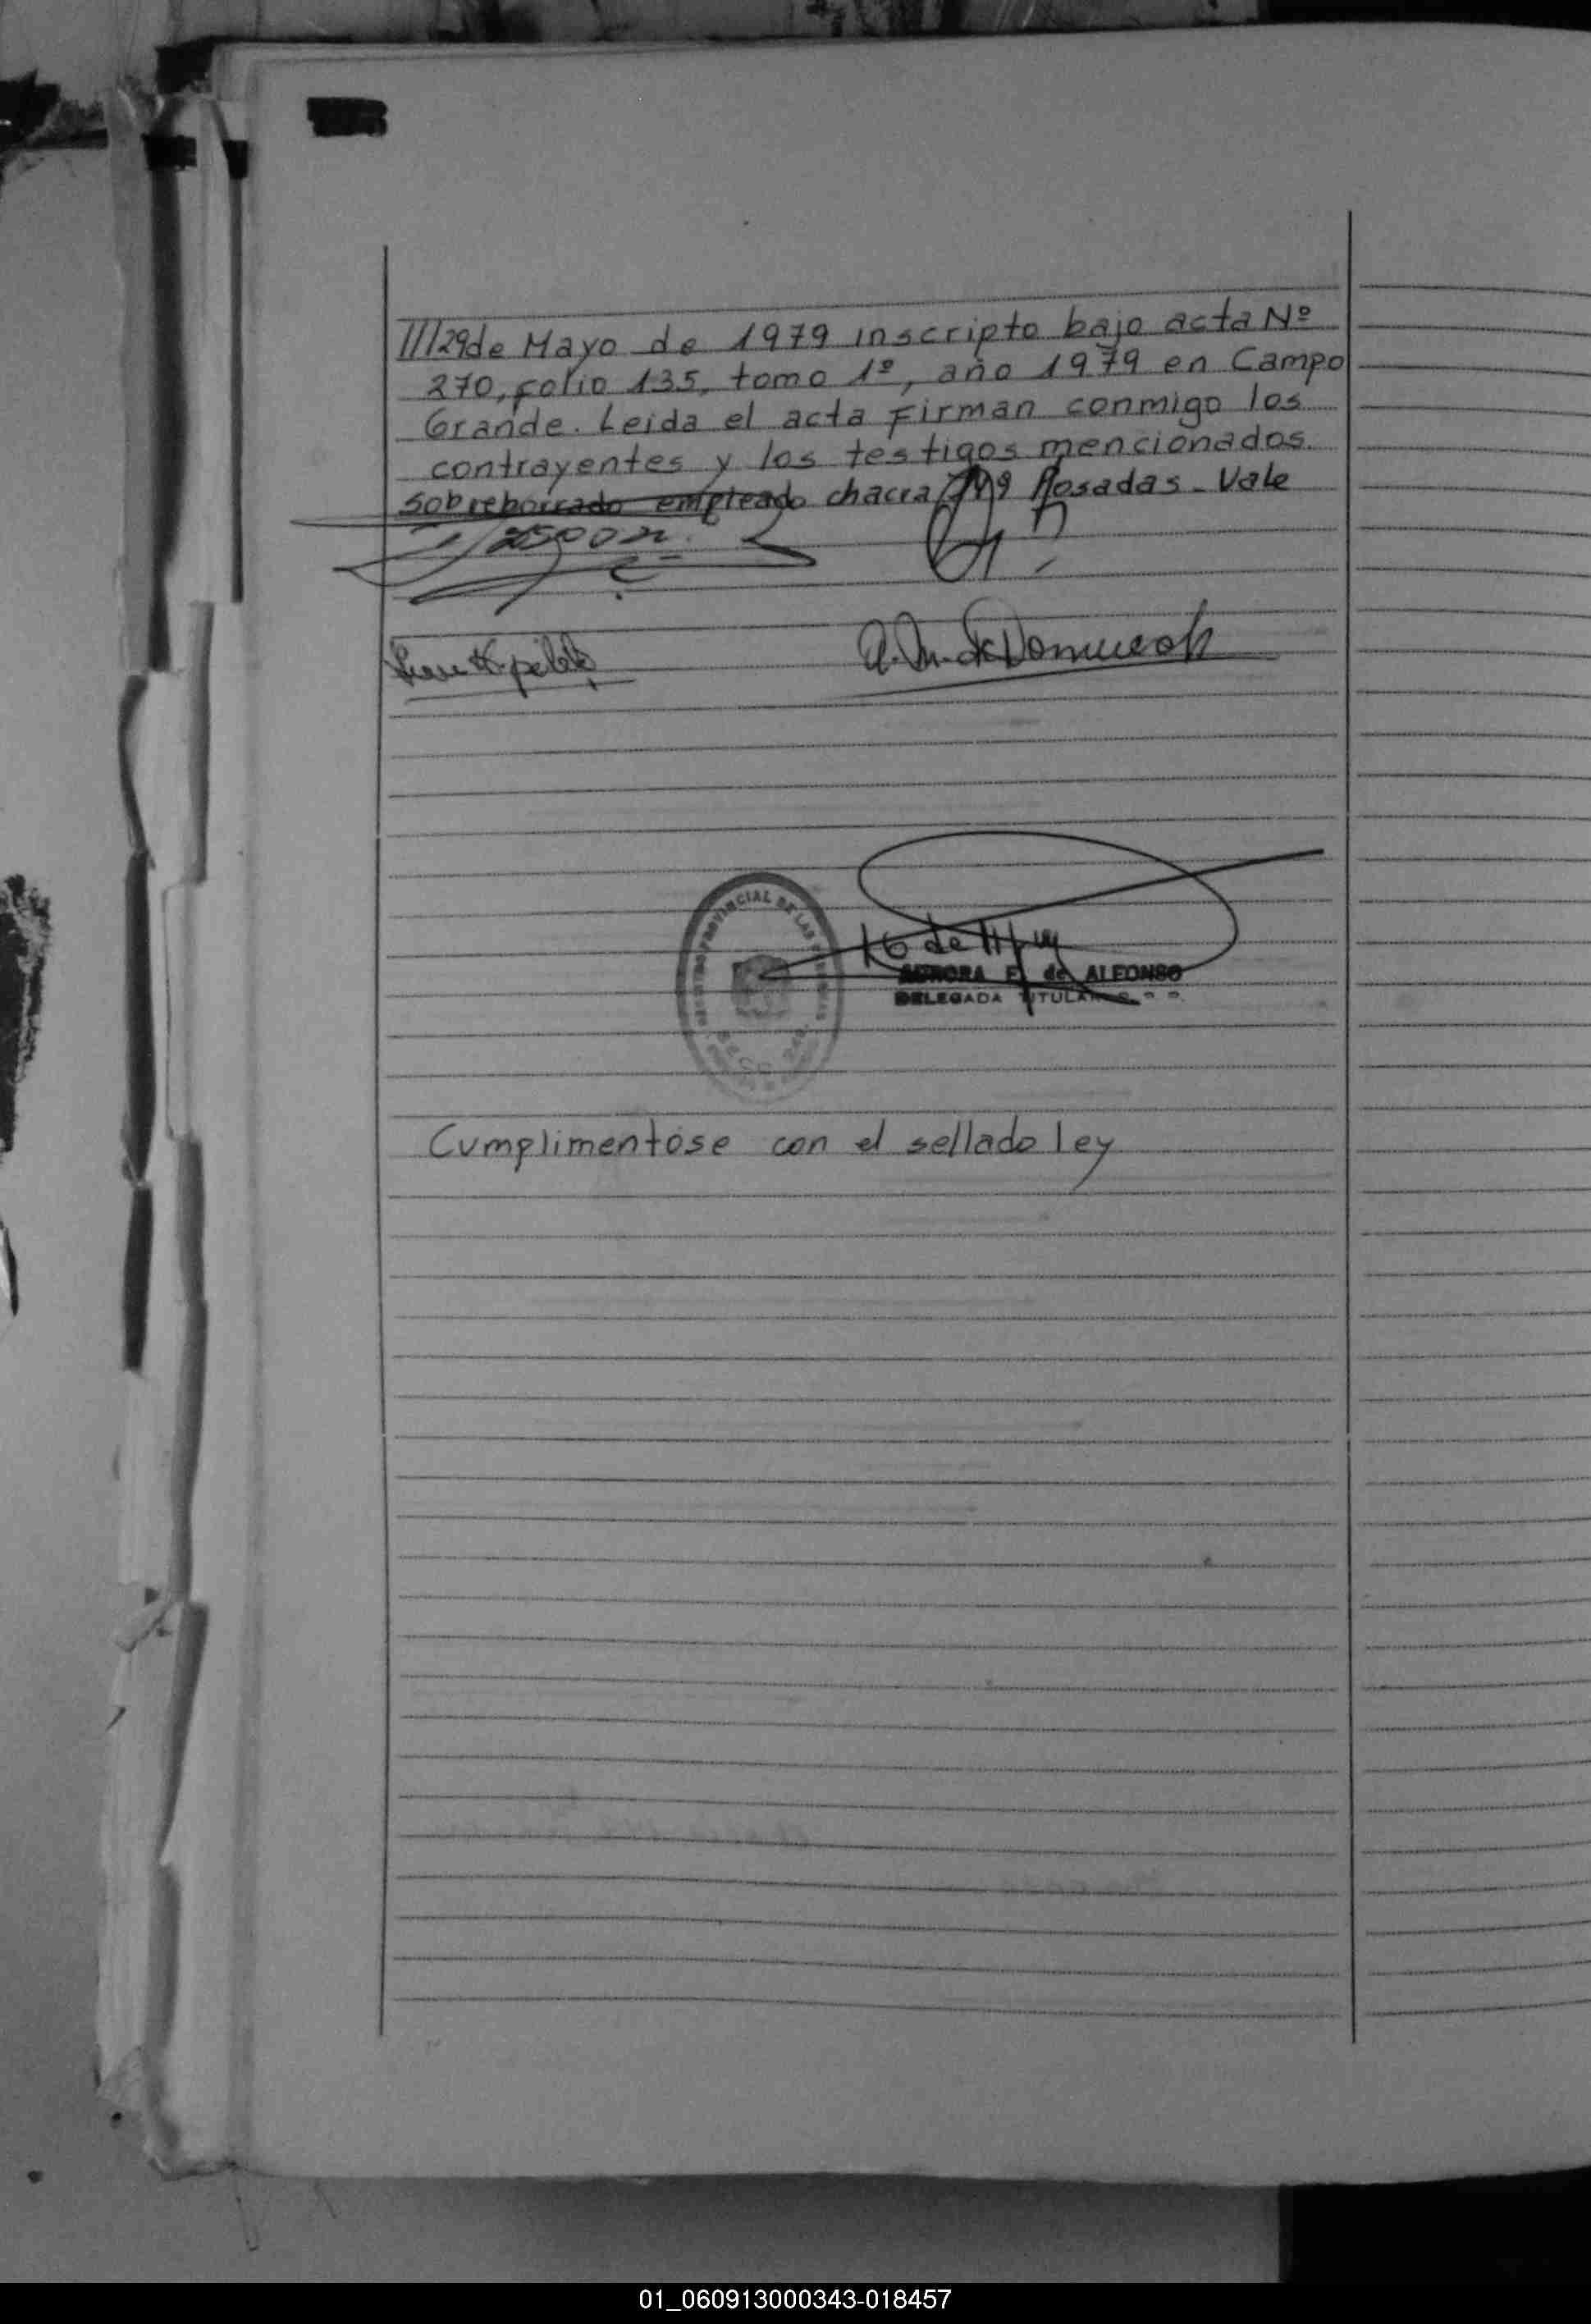 ///29 de Mayo de 1979 inscripto bajo acta Nº
270, folio 135, tomo 1º, año 1979 en Campo
Grande. Leida el acta Firman conmigo los
contrayentes y los testigos mencionados.
sobreborrado empleado chacra 149 Posadas - Vale
PROVINCIAL DE LAS
16 de
AURORA E. de ALFONSO
DELEGADA TITULAR
Cumplimentóse con el sellado ley
01_060913000343-018457